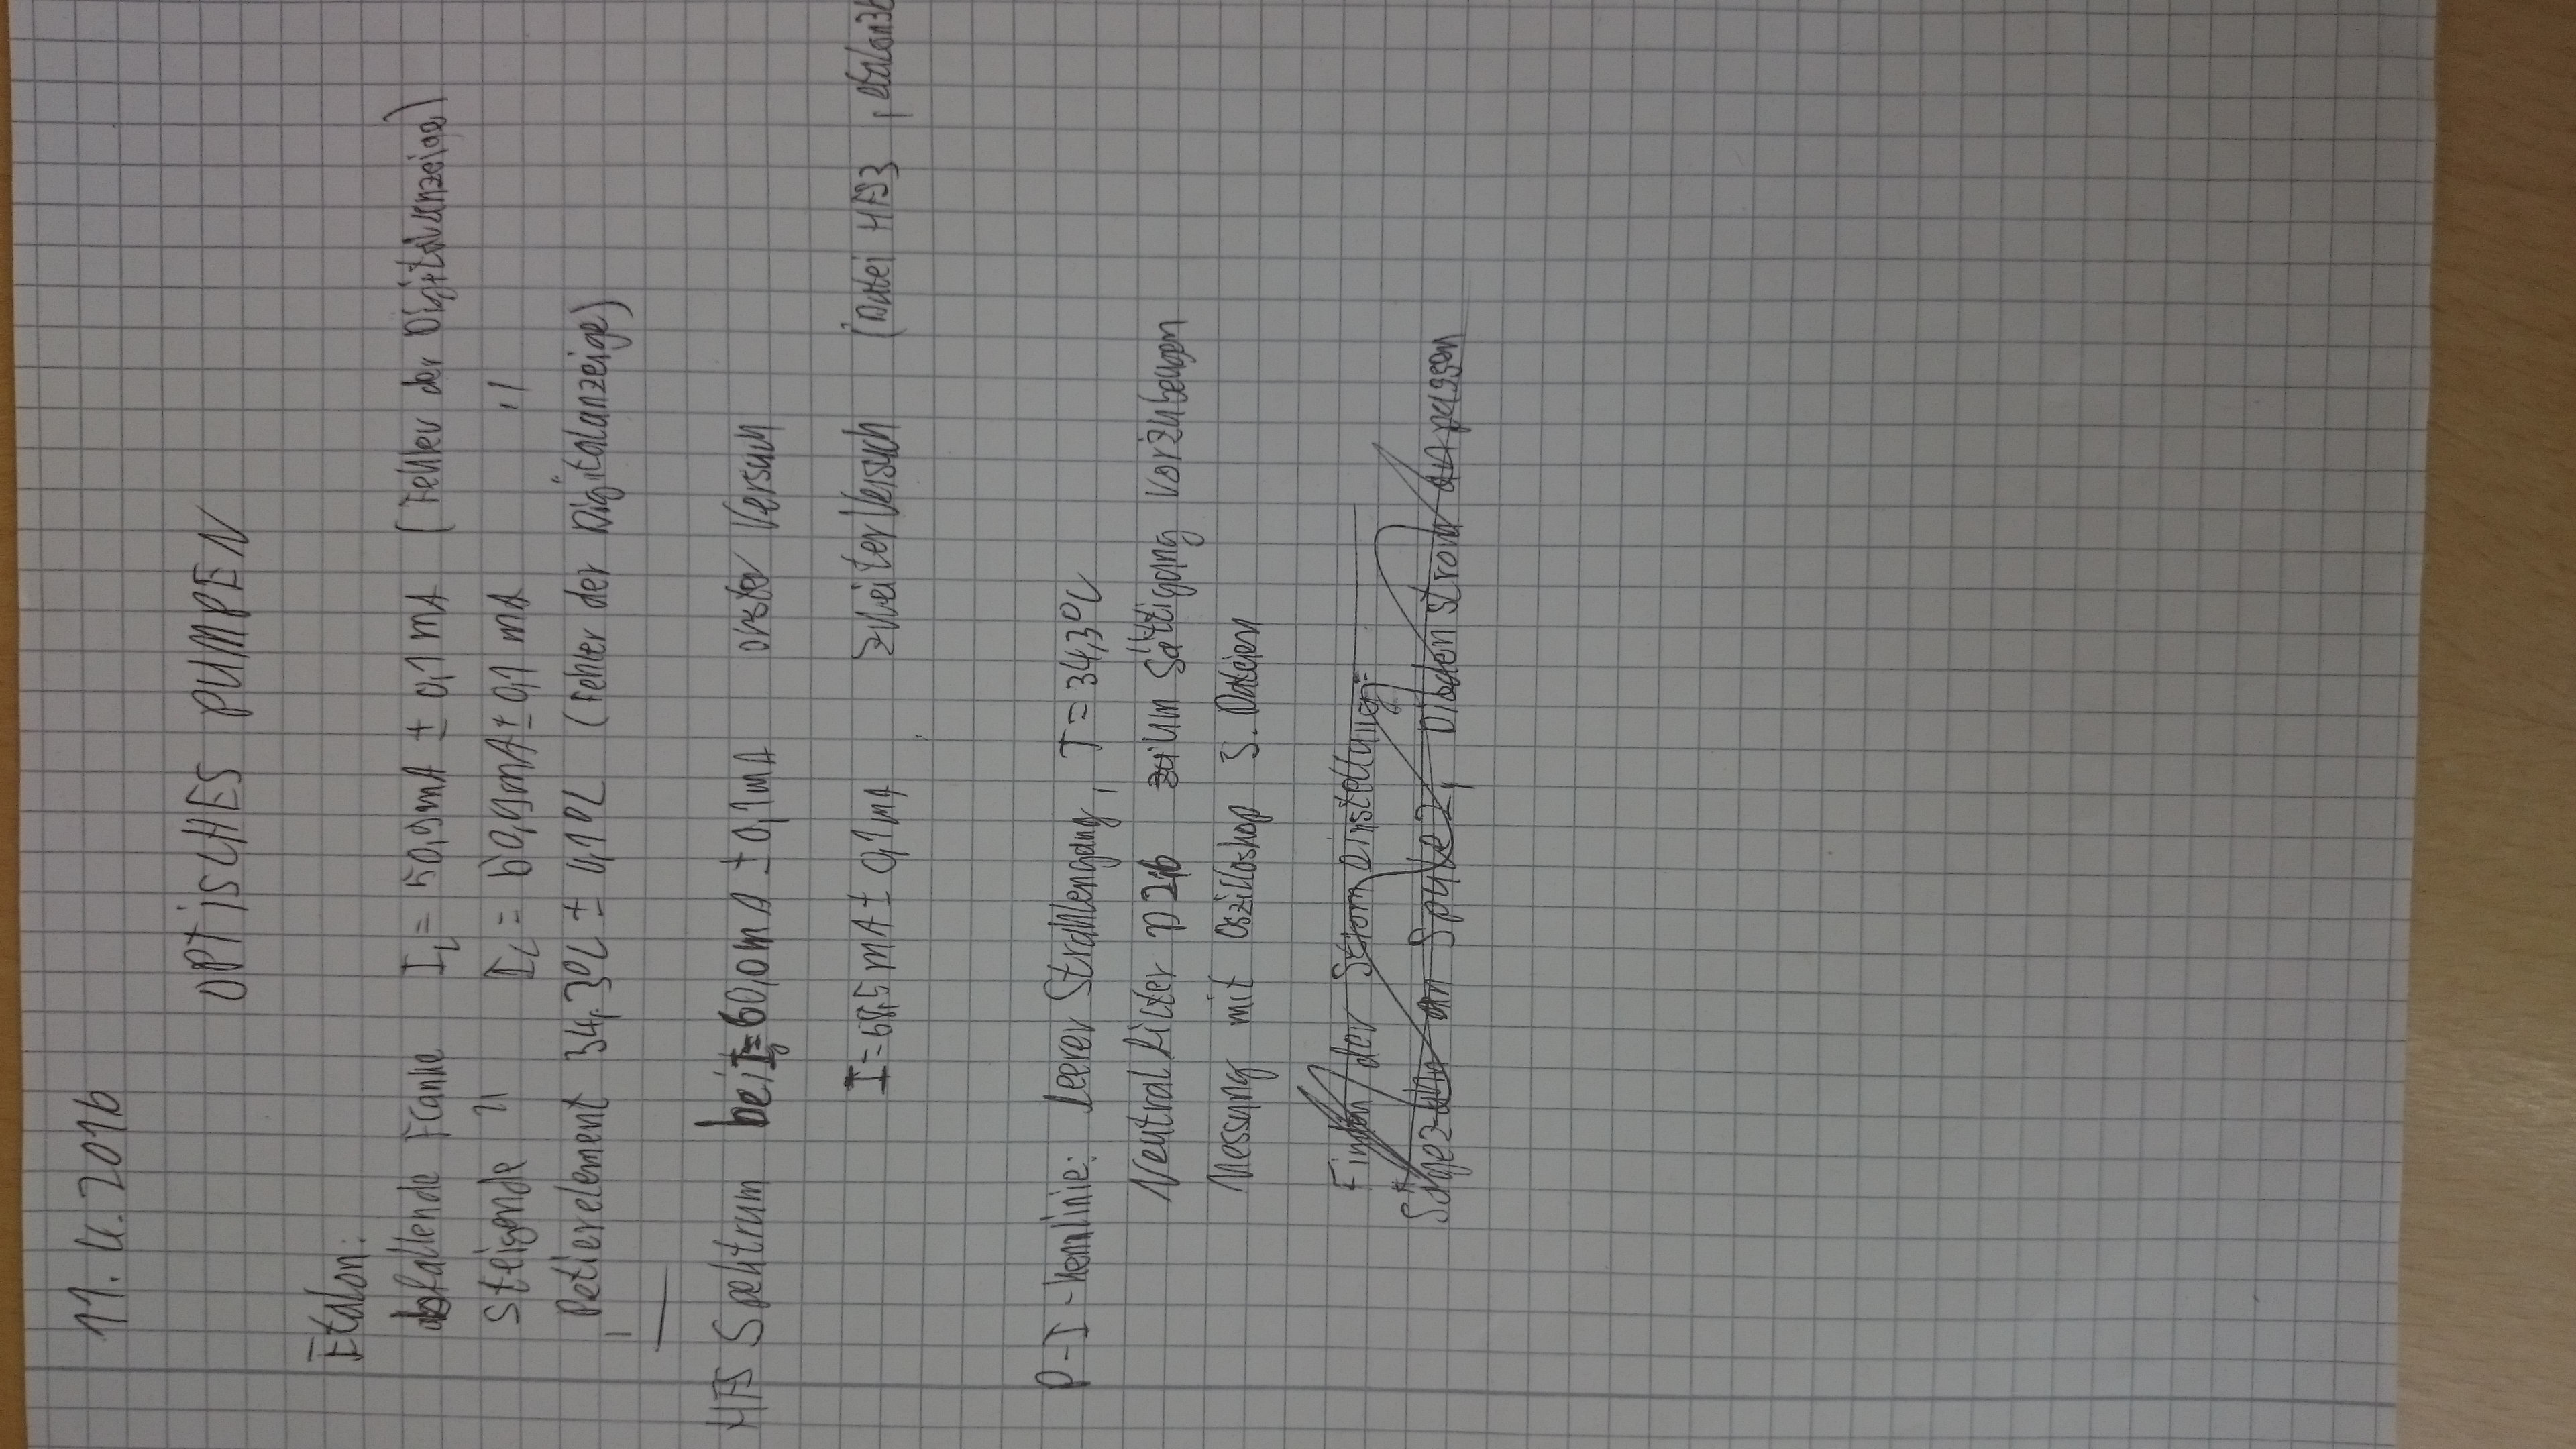 11.4.2016
OPTISCHES PUMPEN
Etalon:
abfallende Flanke I_L = 50,9mA ± 0,1 mA (Fehler der Digitalanzeige)
steigende " I_L = 60,9mA ± 0,1 mA "
Petierelement 34,3°C ± 0,1°C (Fehler der Digitalanzeige)
HFS Spektrum bei I = 60,0 mA ± 0,1 mA erster Versuch
I = 68,5 mA ± 0,1 mA zweiter Versuch (Datei HFS3, etalon3b
P-I-Kennlinie: leerer Strahlengang, T = 34,3°C
Neutralfilter D 2,6 um Sättigung vorzubeugen
Messung mit Oszilloskop s. Dateien
Finden der Stromeinstellung:
Sägezahn an Spule 2, Diodenstrom anpassen